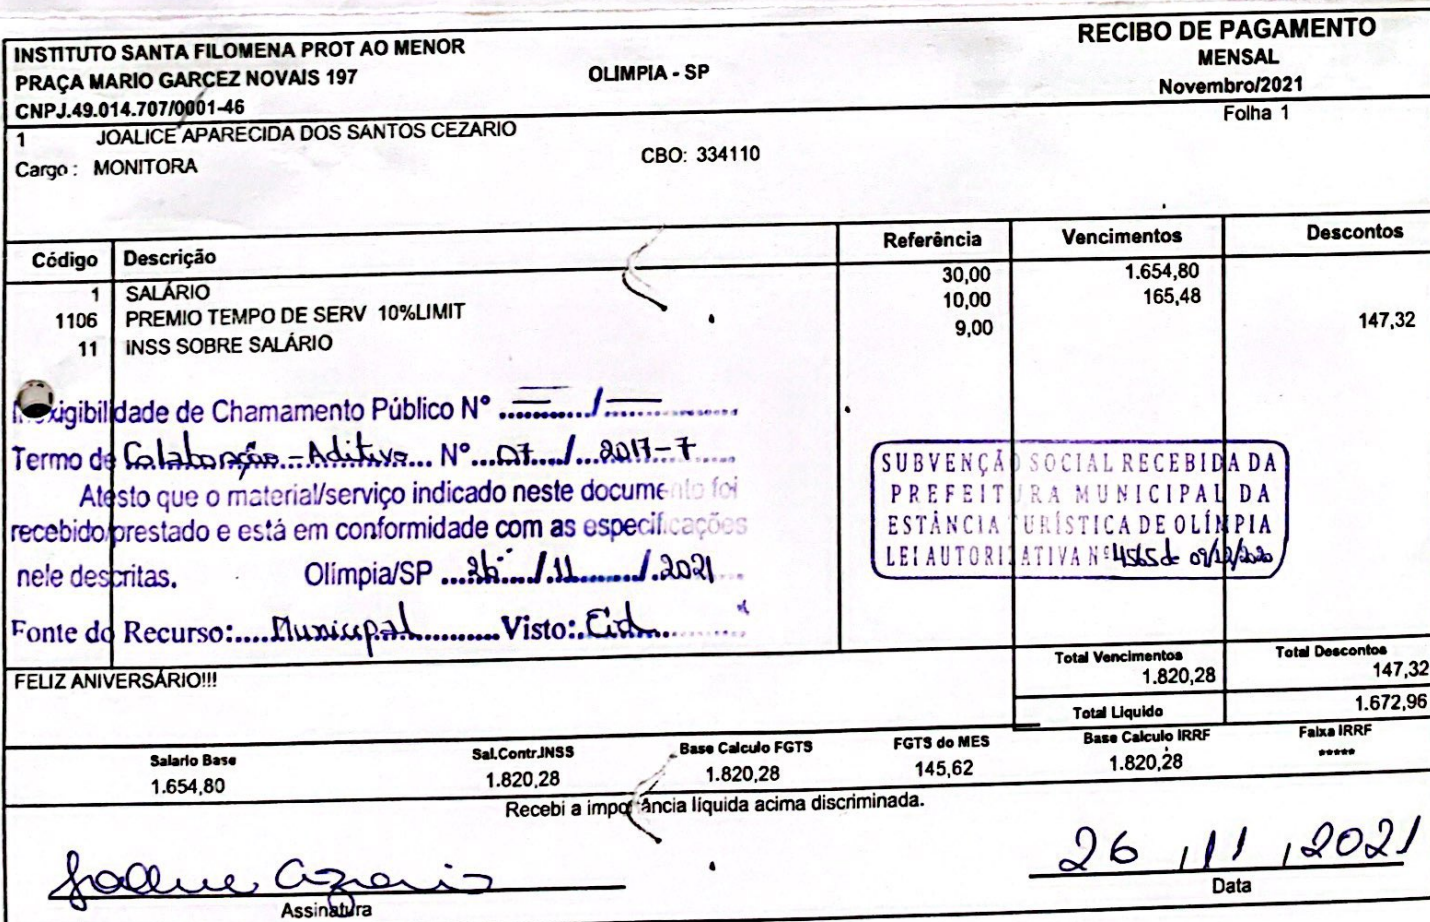 RECIBO DE PAGAMENTO
INSTITUTO SANTA FILOMENA PROT AO MENOR
MENSAL
PRAÇA MARIO GARCEZ NOVAIS 197 OLIMPIA - SP
Novembro/2021
CNPJ.49.014.707/0001-46
Folha 1
1 JOALICE APARECIDA DOS SANTOS CEZARIO
Cargo : MONITORA CBO: 334110
Código Descrição Referência Vencimentos Descontos
1 SALÁRIO 30,00 1.654,80
1106 PREMIO TEMPO DE SERV 10%LIMIT 10,00 165,48
11 INSS SOBRE SALÁRIO 9,00 147,32
Inexigibilidade de Chamamento Público Nº ............/..................
Termo de Colaboração - Aditivo Nº 07 / 2017-7
Atesto que o material/serviço indicado neste documento foi
recebido/prestado e está em conformidade com as especificações
nele descritas. Olímpia/SP 26 / 11 / 2021
Fonte do Recurso: Municipal Visto:
SUBVENÇÃO SOCIAL RECEBIDA DA
PREFEITURA MUNICIPAL DA
ESTÂNCIA TURÍSTICA DE OLÍMPIA
LEI AUTORIZATIVA Nº 4565 de 09/12/2020
FELIZ ANIVERSÁRIO!!!
Total Vencimentos Total Descontos
1.820,28 147,32
Total Liquido 1.672,96
Salario Base Sal.Contr.INSS Base Calculo FGTS FGTS do MES Base Calculo IRRF Faixa IRRF
1.654,80 1.820,28 1.820,28 145,62 1.820,28 *****
Recebi a importância líquida acima discriminada.
26 / 11 / 2021
Assinatura Data